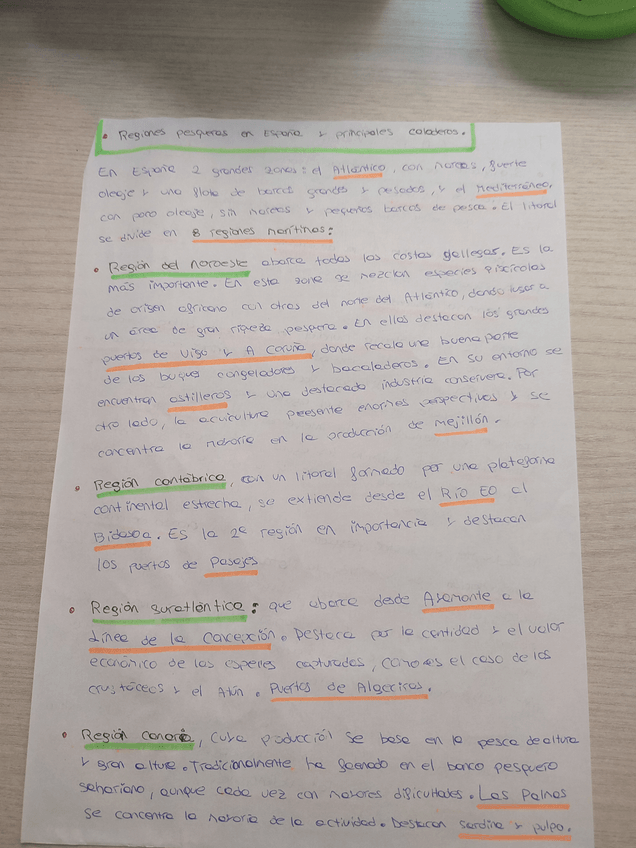 • Regiones pesqueras en España y principales caladeros.
En España 2 grandes zonas: el Atlántico, con mareas, fuerte
oleaje y una flota de barcos grandes y pesados, y el Mediterráneo,
con poro oleaje, sin mareas y pequeños barcos de pesca. El litoral
se divide en 8 regiones marítimas:
• Región del noroeste abarca todas las costas gallegas. Es la
más importante. En esta zona se mezclan especies piscícolas
de origen africano con otras del norte del Atlántico, dando lugar a
un área de gran riqueza pesquera. En ellas destacan los grandes
puertos de Vigo y A Coruña, donde recala una buena parte
de los buques congeladores y bacaladeros. En su entorno se
encuentran astilleros y una destacada industria conservera. Por
otro lado, la acuicultura presenta enormes perspectivas y se
concentra la mayoría en la producción de mejillón.
• Región cantábrica, con un litoral formado por una plataforma
continental estrecha, se extiende desde el Río EO al
Bidasoa. Es la 2ª región en importancia y destacan
los puertos de Pasajes
• Región suratlántica: que abarca desde Ayamonte a la
Línea de la Concepción. Destaca por la cantidad y el valor
económico de las especies capturadas, como es el caso de los
crustáceos y el Atún. Puertos de Algeciras.
• Región canaria, cuya producción se basa en la pesca de altura
y gran altura. Tradicionalmente ha faenado en el banco pesquero
sahariano, aunque cada vez con mayores dificultades. Las Palmas
se concentra la mayoría de la actividad. Destacan sardina y pulpo.